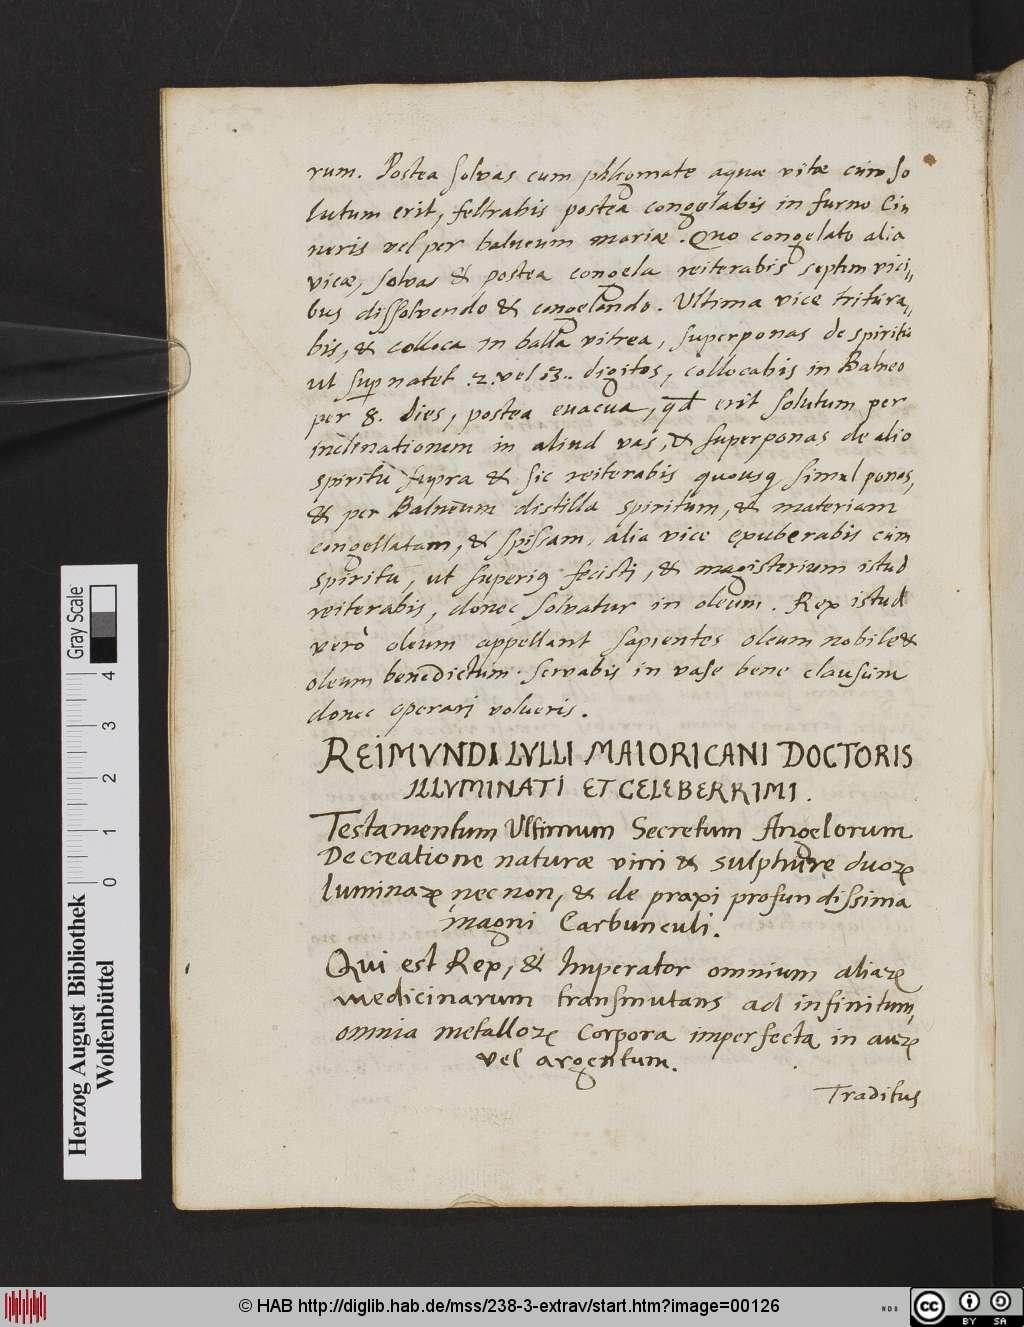 rum. Postea solvas cum phlegmate aquæ vitæ cum so
lutum erit, feltrabis postea congelabis in furno Cin
neris vel per balneum mariæ. Quo congelato alia
vicæ, solvas & postea congela reiterabis septem vici„
bus dissolvendo & congelando. Ultima vice tritura„
bis, & colloca in balla vitrea, superponas de spiritu
ut supnatet .2. vel .3.. digitos, collocabis in Balneo
per 8. dies, postea evacua, qd erit solutum per
inclinationem in aliud vas, & superponas de alio
spiritu supra & sic reiterabis quousq simul ponas,
& per Balneum distilla spiritum, & materiam
congellatam, & spissam, alia vice exuberabis cum
spiritu, ut superiq fecisti, & magisterium istud
reiterabis, donec solvatur in oleum. Rex istud
verò oleum appellant sapientes oleum nobile &
oleum benedictum. servabis in vase bene clausum
donec operari volueris.
REIMVNDI LVLLI MAIORICANI DOCTORIS
ILLVMINATI ET CELEBERRIMI.
Testamentum Ultimum Secretum Angelorum
De creatione naturæ vitri & sulphure duoꝝ
luminaꝝ nec non, & de praxi profundissima
magni Carbunculi.
Qui est Rex, & Imperator omnium aliaꝝ
medicinarum transmutans ad infinitum,
omnia metalloꝝ corpora imperfecta in auꝝ
vel argentum.
Traditus
Gray Scale
0 1 2 3 4
Herzog August Bibliothek
Wolfenbüttel
© HAB http://diglib.hab.de/mss/238-3-extrav/start.htm?image=00126
NDB
cc BY SA